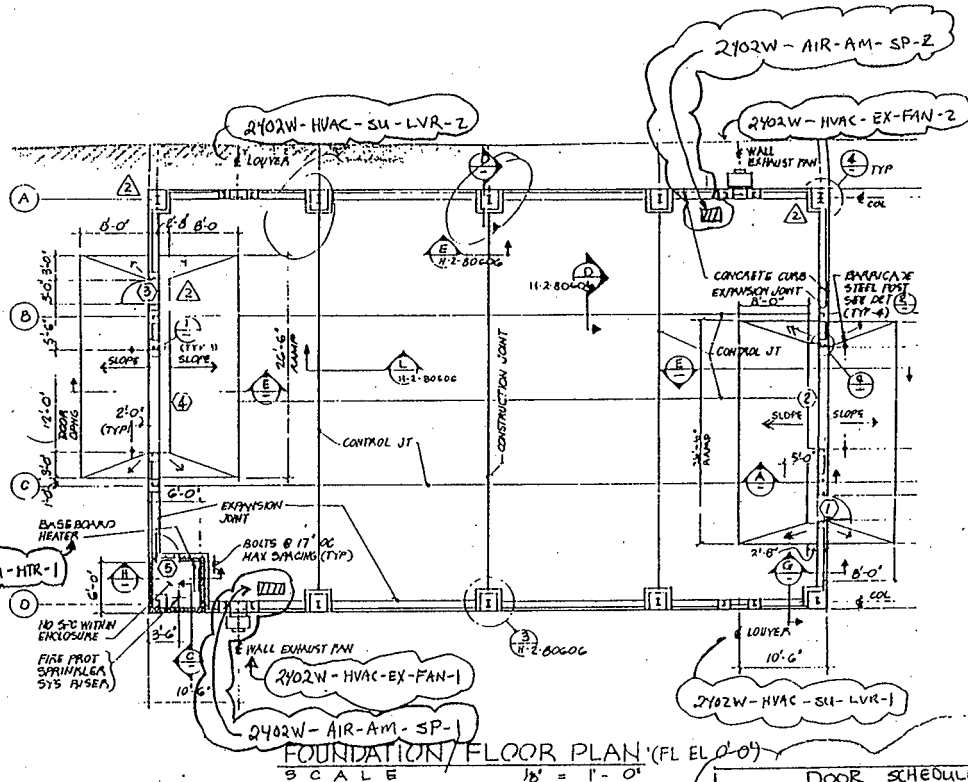 2402W-AIR-AM-SP-2
2402W-HVAC-SU-LVR-2
2402W-HVAC-EX-FAN-2
℄ LOUVER
D
WALL
EXHAUST FAN
4
TYP
A
2
℄ COL
2
8'-0"
8'-0
E
H-2-80606
D
H-2-80606
CONCRETE CURB
EXPANSION JOINT
8'-0"
BARRICADE
STEEL POST
SEE DET
(TYP-4)
2
3
B
1
(TYP)
SLOPE
SLOPE
26'-6"
RAMP
L
H-2-80606
CONSTRUCTION JOINT
CONTROL JT
E
E
4
2
SLOPE
SLOPE
DOOR
OPNG
12'-0"
2'-0"
(TYP)
CONTROL JT
RAMP
A
5'-0"
C
6'-0"
1
EXPANSION
JOINT
BASEBOARD
HEATER
BOLTS @ 17" OC
MAX SPACING (TYP)
-HTR-1
H
5
6'-0"
2'-8"
G
8'-0"
D
℄ COL
NO S-C WITHIN
ENCLOSURE
3'-6"
3
H-2-80606
℄ LOUVER
FIRE PROT
SPRINKLER
SYS RISER
10'-6"
WALL EXHAUST FAN
10'-6"
2402W-HVAC-EX-FAN-1
2402W-HVAC-SU-LVR-1
2402W-AIR-AM-SP-1
FOUNDATION/FLOOR PLAN (FL EL 0'-0")
SCALE 1/8" = 1'-0"
DOOR SCHEDUL